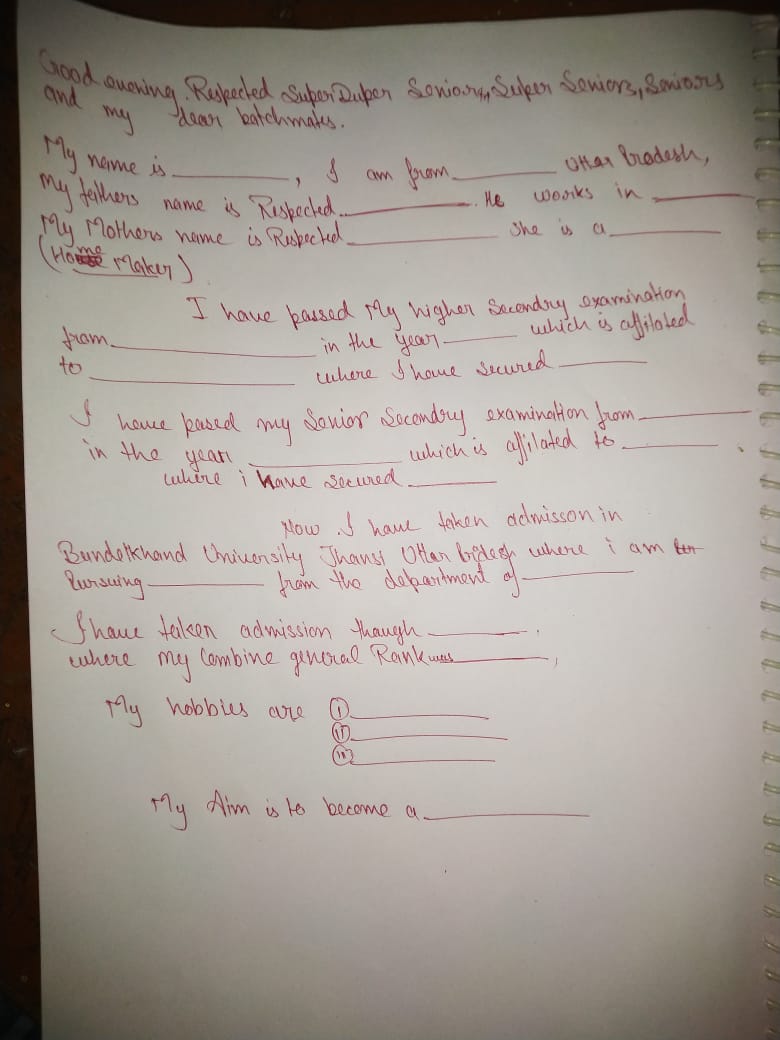 Good evening. Respected Super Duper Seniors, Super Seniors, Seniors
and my dear batchmates.
My name is ________, I am from ________ Uttar Pradesh,
My fathers name is Respected ________. He works in ________
My Mothers name is Respected ________ She is a ________
(Home Maker)
I have passed My higher Secondry examination
from ________ in the year ________ which is affilated
to ________ where I have secured ________
I have pased my Senior Secondry examination from ________
in the year ________ which is affilated to ________.
where i have secured ________
Now I have taken admisson in
Bundelkhand University Jhansi Uttar where i am
Pursuing ________ from the department of ________
I have taken admission though ________.
where my Combine general Rank was ________,
My hobbies are (I) ________
(II) ________
(III) ________
My Aim is to become a ________